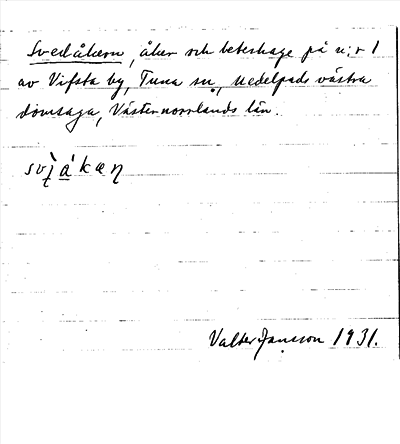 Svedåkern, åker och beteshage på n:r 1
av Vifsta by, Tuna sn, Medelpads västra
domsaga, Västernorrlands län.
Valter Jansson 1931.